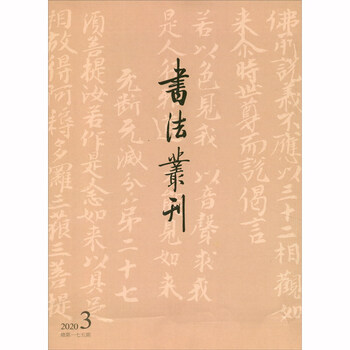 書法叢刊
佛所說義不應以三十二相觀如
來尒時世尊而說偈言
若以色見我 以音聲求我
是人行 見如來
无斷无滅分第二十七
須菩提汝若作是念如來以具
相故得阿耨多羅三藐三菩提
2020 3
總第一七五期